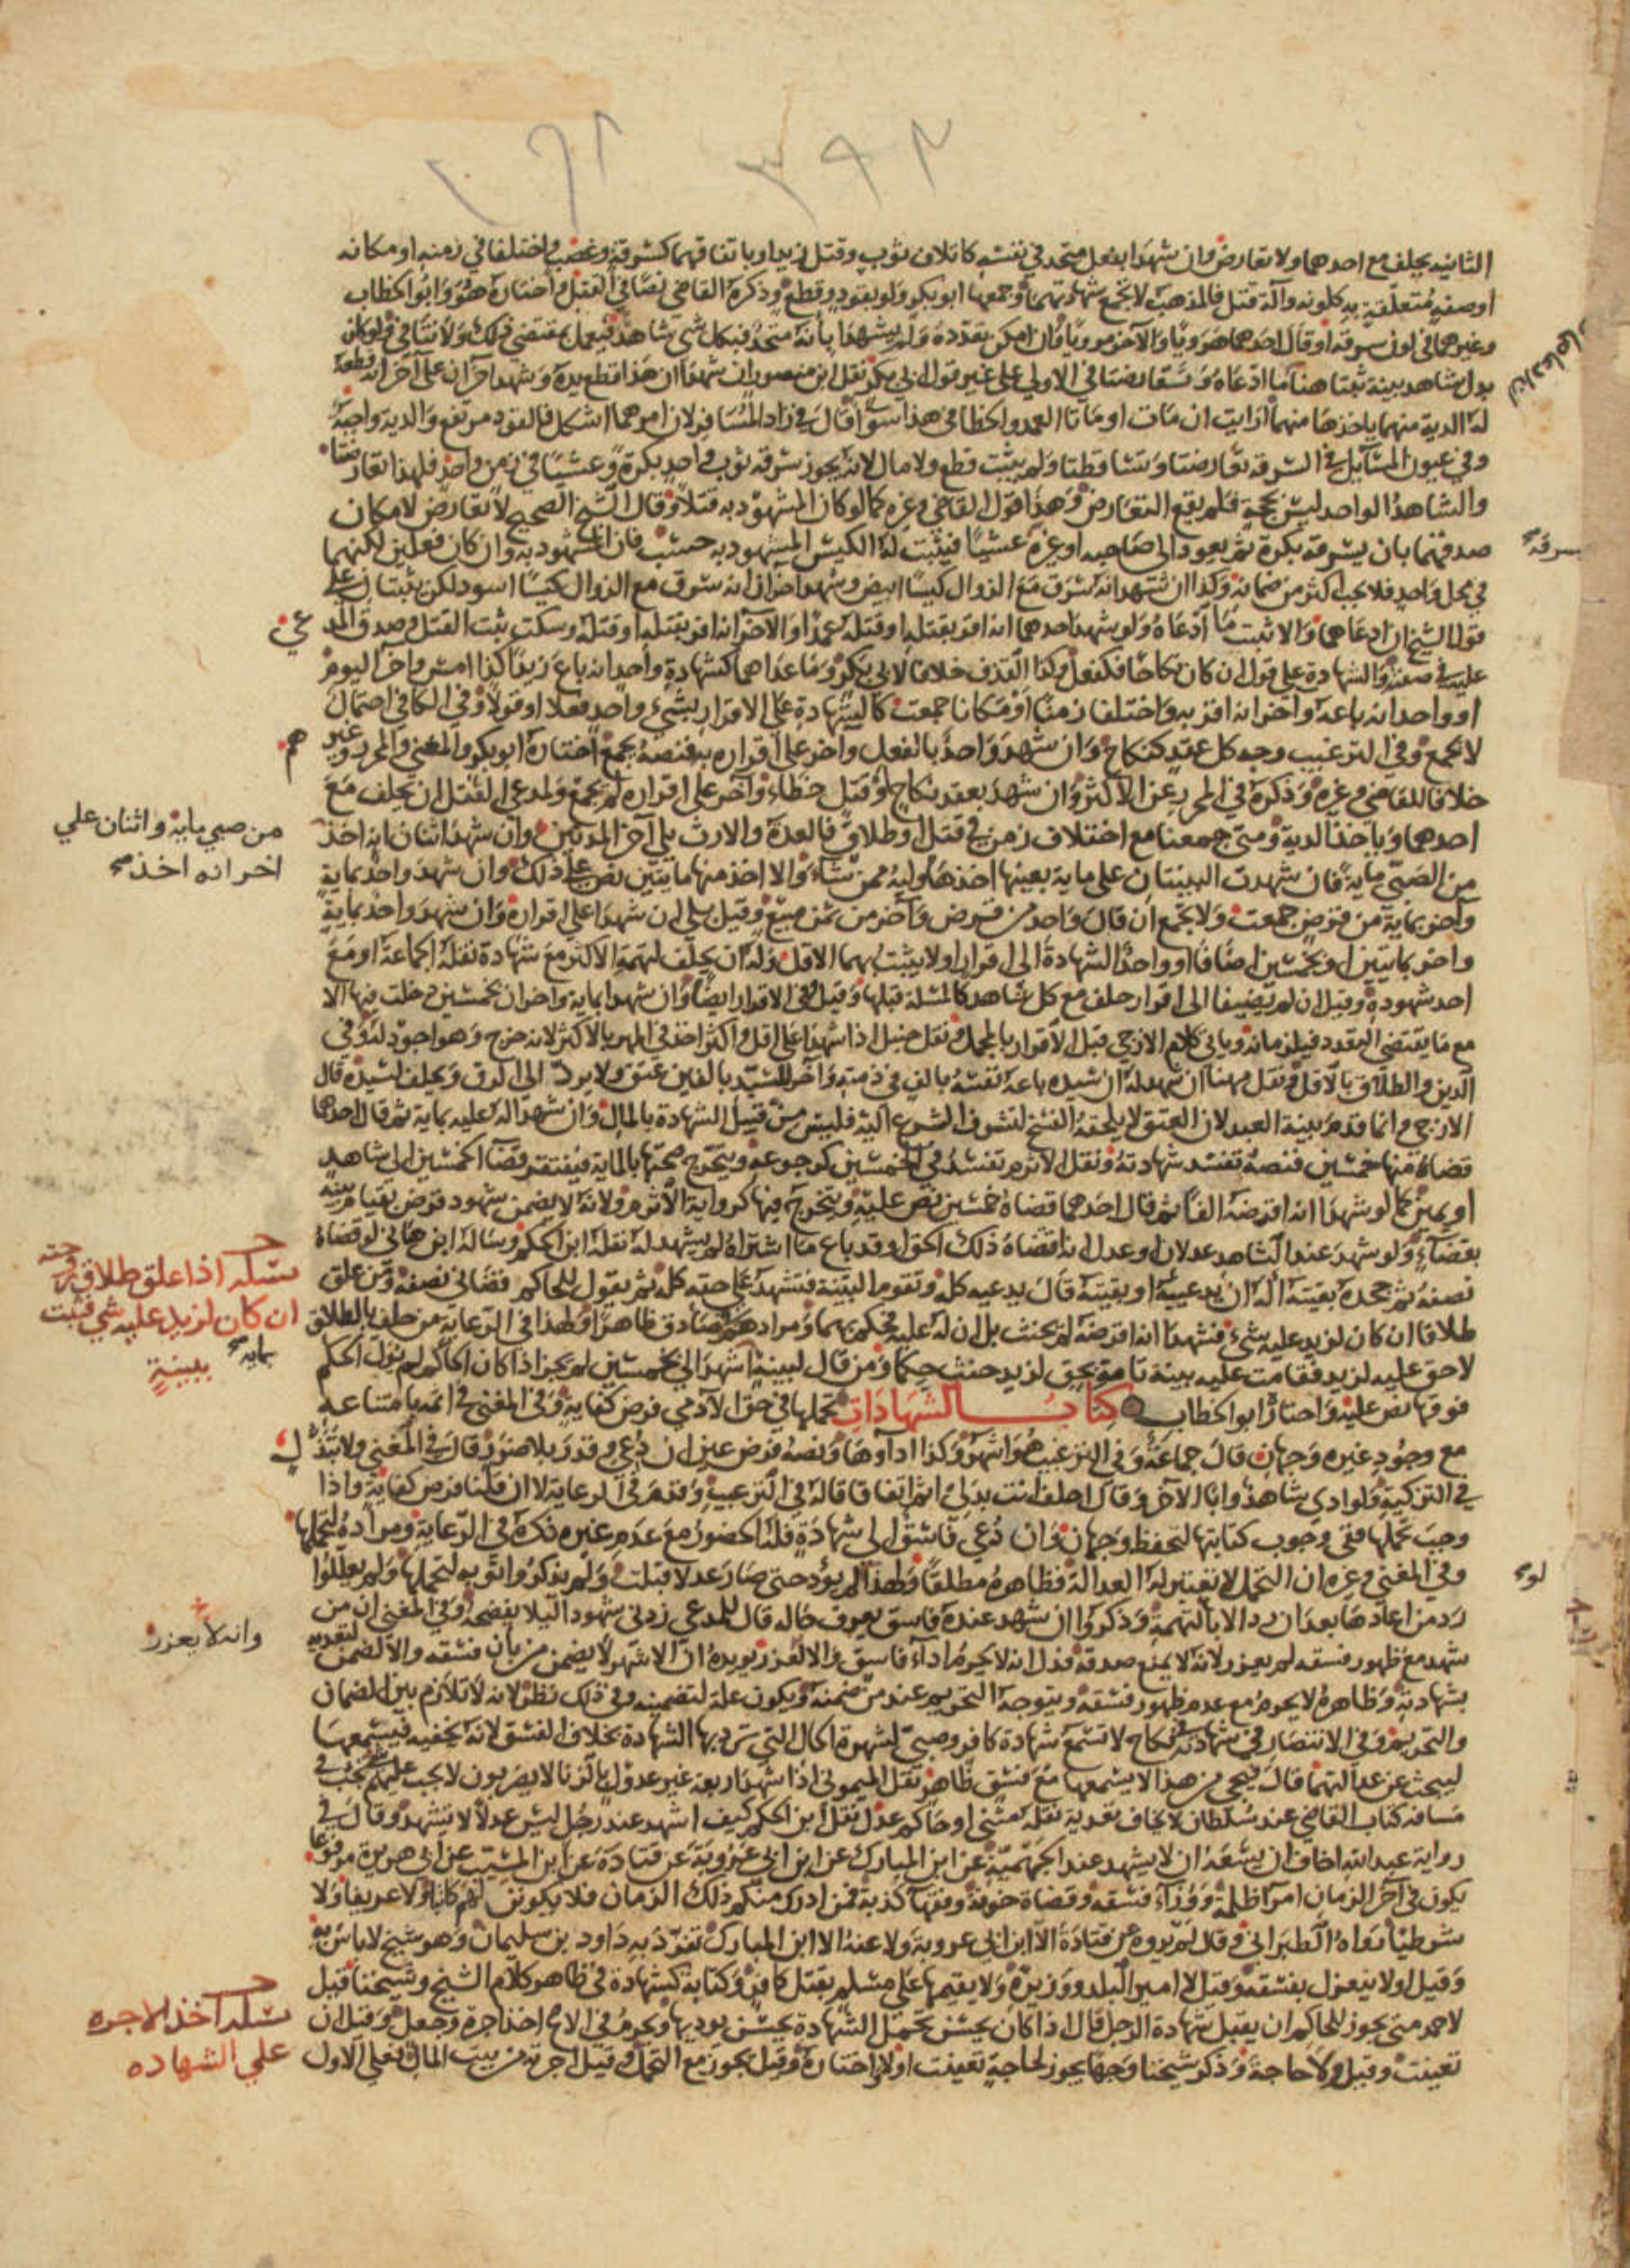 الثانيه يحلف مع احدهما ولا تعارض وان شهدا بفعل متحد في نفسه كاتلاف ثوب وقتل زيد او باتفاقهما كسرقة وغصب واختلفا في زمنه او مكانه
او صفة متعلقة به كلونه وآلة قتل فالمذهب لا تجمع شهادتهما وجمعها ابو بكر ولو بقود وقطع وذكره القاضي نصا في القتل واختاره هو وابو الخطاب
وغيرهما في لون سرقة او قال احدهما هرويا والآخر مرويا وان امكن تعدده ولم يشهدا بأنه متحد فبكل شي شاهد فيعمل بمقتضى ذلك ولا تنافي ولو كان
بدل شاهد بينة ثبتا هنا ما ادعاه وتعارضتا في الاولى على غير قول ابي بكر نقل ابن منصور ان شهدا ان هذا قطع يده وشهد اخران على آخر انه قطعه
له الدية منهما ياخذها منهما ارايت ان مات او ماتا العمد والخطا في هذا سوا قال في زاد المسافر لان امرهما اشكل فالقود مرتفع والدية واجبة
وفي عيون المسآيل في السرقه تعارضتا وتساقطتا ولم يثبت قطع ولا مال لانه يجوز سرقه ثوب واحد بكرة وعشيا في زمن واحد فلهذا تعارضتا
والشاهد الواحد ليس بحجة فلم يقع التعارض وهذا قول القاضي وغيره كما لو كان المشهود به قتلا وقال الشيخ الصحيح لا تعارض لامكان
صدقهما بان يسرقه بكرة ثم يعود الى صاحبه او غيره عشيا فيثبت له الكيس المشهود به حسب فان المشهود به وان كان فعلين لكنهما
في محل واحد فلا يجب اكثر من ضمانه وكذا ان شهد انه سرق مع الزوال كيسا ابيض وشهد اخران انه سرق مع الزوال كيسا اسود لكن يثبتان على
قول الشيخ ان ادعاهما والا ثبت ما ادعاه ولو شهد احدهما انه اقر بقتله او قتله عمدا والآخر انه اقر بقتله او قتله وسكت ثبت القتل وصدق المدعى
عليه في صفته والشهادة على قول ان كان نكاحا فكفعل وكذا القذف خلافا لابي بكر وما عداهما كشهادة واحد انه باع زيدا كذا امس واخر اليوم
او واحد انه باعه واخر انه اقر به واختلفا زمنا او مكانا جمعت كالشهادة على الاقرار بشيء واحد فعلا او قولا وفي الكافي احتمال
لا تجمع وفي الترغيب وجه كل عقد كنكاح وان شهد واحد بالفعل واخر على اقراره به فنصه يجمع اختاره ابو بكر والمغني والمحرر وغيرهم
خلافا للقاضي وغيره وذكره في المحرر عن الاكثر وان شهد بعقد نكاح او قتل خطاء وآخر على اقراره لم يجمع ولمدعي القتل ان يحلف مع
احدهما وياخذ الدية ومتى جمعنا مع اختلاف زمن في قتل او طلاق فالعدة والارث يلي آخر المدتين وان شهد اثنان انه اخذ
من الصبي ماية فان شهدت البينتان على ماية بعينها اخذها وليه ممن شاء والا اخذ منهما مايتين نص على ذلك وان شهد واحد بماية
وآخر بماية من قرض جمعت ولا تجمع ان قال واحد من قرض وآخر من ثمن مبيع وقيل بلى ان شهدا على اقراره وان شهد واحد بماية
واخر بمايتين او بخمسين اضافا او واحد الشهادة الى اقرار او لا يثبت بهما الاقل وله ان يحلف لتتمة الاكثر مع شهادة نقله الجماعة او مع
احد شهوده وقيل ان لم يضيفا الى اقرار حلف مع كل شاهد كالمسئلة قبلها وقيل في الاقرار ايضا وان شهدا بماية واخران بخمسين دخلت فيها الا
مع ما يقتضي التعدد فيلزمانه وياتي كلام الازجي قبل الاقرار بالمجمل ونقل حنبل اذا شهدا على اقل واكثر اخذ في المهر بالاكثر لانه خرج وهو اجود له وفي
الدين والطلاق بالاقل ونقل مهنا ان شهد له ان سيده باعه نفسه بالف في ذمته وآخر للسيد بالفين عتق ولا يرد الى الرق ويحلف لسيده قال
الازجي وانما قدم بينة العبد لان العتق لا يلحقه الفسخ لتشوف الشرع اليه فليس من قبيل الشهادة بالمال وان شهدا له عليه بماية ثم قال احدهما
قضاه منها خمسين فنصه تفسد شهادته ونقل الاثرم تفسد في الخمسين كرجوعه ويتخرج صحتها بالماية فيفتقر قضآ الخمسين الى شاهد
او يمين كما لو شهدا انه اقرضه الفا ثم قال احدهما قضاه خمسين نص عليه ويتخرج فيها كرواية الاثرم ولانه لا يضمن شهود قرض بقيام بينة
بقضآء ولو شهد عند الشاهد عدلان او عدل انه اقضاه ذلك الحق او قد باع ما اشتراه لم يشهد له نقله ابن الحكم وساله ابن هاني لو قضاه
نصفه ثم جحده بقيته اله ان يدعيه او بقيته قال يدعيه كله وتقوم البينة فتشهد على حقه كله ثم يقول للحاكم قضاني نصفه ومن علق
طلاقا ان كان لزيد عليه شيء فشهدا انه اقرضه لم يحنث بل ان له عليه فحكم بهما ومرادهم صادق ظاهرا ولهذا في الرعاية من حلف بالطلاق
لا حق عليه لزيد فقامت عليه بينة تامة بحق لزيد حنث حكما ومن قال لبينة اشهدا لي بخمسين لم يجز اذا كان الحاكم لم يول الحكم
فوقها نص عليه واختار ابو الخطاب كتاب الشهادات تحملها في حق الآدمي فرض كفاية وفي المغني في اثمه بامتناعه
مع وجود غيره وجهان قال جماعة وفي الترغيب هو اشهر وكذا اداوها ونصه فرض عين ان دعي وقدر بلا ضرر قال في المغني ولا تبذل
في التزكية ولو ادى شاهد وابا الآخر وقال احلف انت بدلي اثم اتفاقا قاله في الترغيب وقدم في الرعاية لا ان قلنا فرض كفاية واذا
وجب تحملها ففي وجوب كتابتها لتحفظ وجهان وان دعي فاسق الى شهادة فله الحضور مع عدم غيره ذكره في الرعاية ومراده لتحملها
وفي المغني وغيره ان التحمل لا تعتبر له العدالة فظاهره مطلقا ولهذا لم يؤد حتى صار عدلا قبلت ولم يذكروا توبه لتحملها ولم يعللوا
رد من اعادها بعد ان رد الا بالتهمة وذكروا ان شهد عنده فاسق يعرف حاله قال للمدعي زدني شهودا ليلا يفضحه وفي المغني ان من
شهد مع ظهور فسقه لم يعزر لانه لا يمنع صدقه فدل انه لا يحرم اداء فاسق والا لعزر يويده ان الاشهر لا يضمن من بان فسقه والا لضمن لتغريره
بشهادته وظاهره لا يحرم مع عدم ظهور فسقه ويتوجه التحريم عند من ضمنه ويكون علة لتضمينه وفي ذلك نظر لانه لا تلازم بين الضمان
والتحريم وفي الانتصار في شهادته في نكاح لا تسمع شهادة كافر وصبي لشهرة الحال التي ترد بها الشهادة بخلاف الفسق لانه يخفيه فيسمعها
ليبحث عن عدالتهما قال فيجي من هذا لا يسمعها مع فسق ظاهر نقل الميموني اذا شهد اربعة غير عدول بالزنا لا يضربون لا يجب عليهم تجب في
مسافه كتاب القاضي عند سلطان لا يخاف تعديه نقله مثنى او حاكم عدل نقل ابن الحكم كيف اشهد عند رجل ليس عدلا لا تشهد وقال في
رواية عبد الله اخاف ان يسعه ان لا يشهد عند الجهمية عن ابن المبارك عن ابن ابي عروبة عن قتادة عن ابن المسيب عن ابي هريرة مرفوعا
يكون في آخر الزمان امرآ ظلمة ووزرآء فسقه وقضاة خونة وفقهآ كذبة فمن ادرك منكم ذلك الزمان فلا يكونن لهم كاتبا ولا عريفا ولا
شرطيا رواه الطبراني وقال لم يروه عن قتادة الا ابن ابي عروبة ولا عنه الا ابن المبارك تفرد به داود بن سليمان وهو شيخ لا باس به
وقيل او لا ينعزل بفسقه وقيل لا امير البلد ووزيره ولا يقيمها على مسلم بقتل كافر وكتابة كشهادة في ظاهر كلام الشيخ وشيخنا قيل
لاحمد متى يجوز للحاكم ان يقبل شهادة الرجل قال اذا كان يحسن تحمل الشهادة يحسن يوديها ويحرم في الاصح اخذ اجرة وجعل وقيل ان
تعينت وقيل ولا حاجة وذكر شيخنا وجها يجوز لحاجة تعينت او لا واختاره وقيل يجوز مع التحمل وقيل اجرته من بيت المال فعلى الاول
سرقه
من صبي ماية واثنان علي
اخر انه اخذ
مسئله اذا علق طلاق زوجته
ان كان لزيد عليه شي فثبت
ببينة
لو
وانه لا يعزر
مسئله اخذ الاجره
علي الشهاده